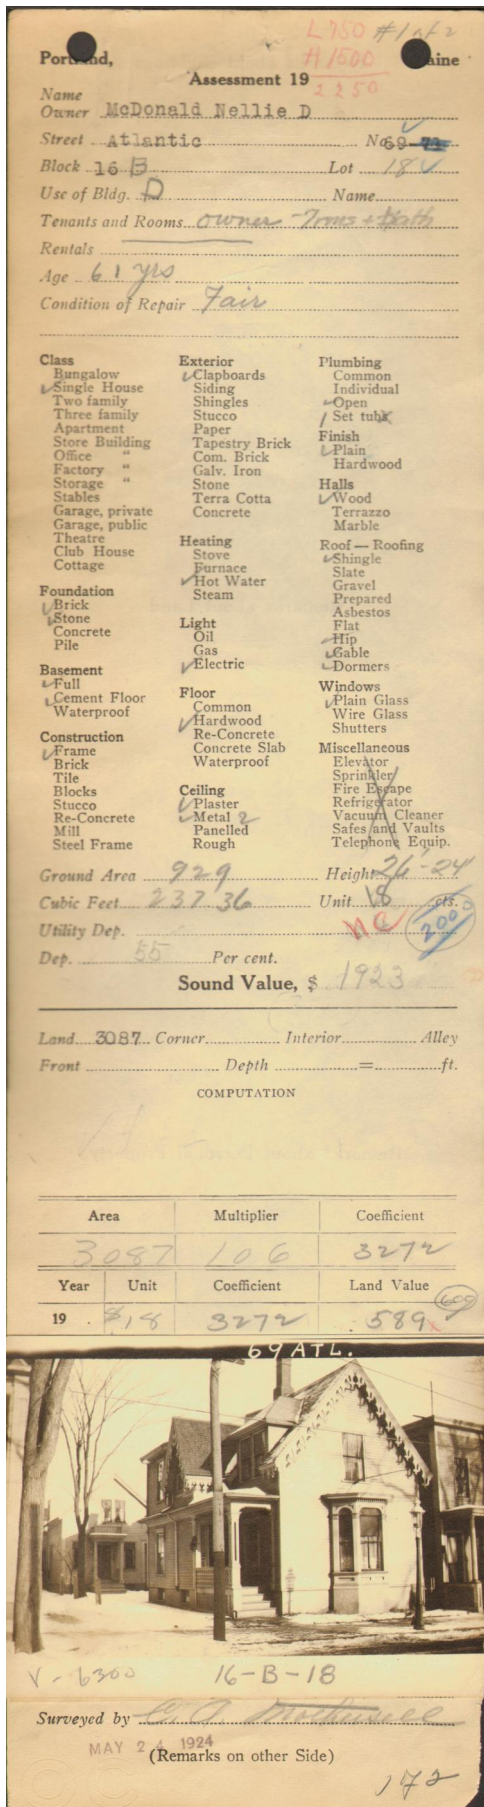 L 750 #1 of 2
H 1500
2250
Portland, Maine
Assessment 19
Name
Owner McDonald Nellie D
Street Atlantic No 69
Block 16 B Lot 18
Use of Bldg. D Name
Tenants and Rooms owner - 7 rms + Bath
Rentals
Age 61 yrs
Condition of Repair Fair
Class
Bungalow
Single House
Two family
Three family
Apartment
Store Building
Office "
Factory "
Storage "
Stables
Garage, private
Garage, public
Theatre
Club House
Cottage
Foundation
Brick
Stone
Concrete
Pile
Basement
Full
Cement Floor
Waterproof
Construction
Frame
Brick
Tile
Blocks
Stucco
Re-Concrete
Mill
Steel Frame
Exterior
Clapboards
Siding
Shingles
Stucco
Paper
Tapestry Brick
Com. Brick
Galv. Iron
Stone
Terra Cotta
Concrete
Heating
Stove
Furnace
Hot Water
Steam
Light
Oil
Gas
Electric
Floor
Common
Hardwood
Re-Concrete
Concrete Slab
Waterproof
Ceiling
Plaster
Metal 2
Panelled
Rough
Plumbing
Common
Individual
Open
1 Set tubs
Finish
Plain
Hardwood
Halls
Wood
Terrazzo
Marble
Roof — Roofing
Shingle
Slate
Gravel
Prepared
Asbestos
Flat
Hip
Gable
Dormers
Windows
Plain Glass
Wire Glass
Shutters
Miscellaneous
Elevator
Sprinkler
Fire Escape
Refrigerator
Vacuum Cleaner
Safes and Vaults
Telephone Equip.
Ground Area 929 Height 26'-24'
Cubic Feet 23736 Unit 18 cts.
Utility Dep. NC 2000
Dep. 55 Per cent.
Sound Value, $ 1923
Land 3087 Corner Interior Alley
Front Depth = ft.
COMPUTATION
Area Multiplier Coefficient
3087 106 3272
Year Unit Coefficient Land Value
19 $18 3272 589 600
69 ATL.
V - 6300 16-B-18
Surveyed by C. A.
MAY 24 1924
(Remarks on other Side)
172